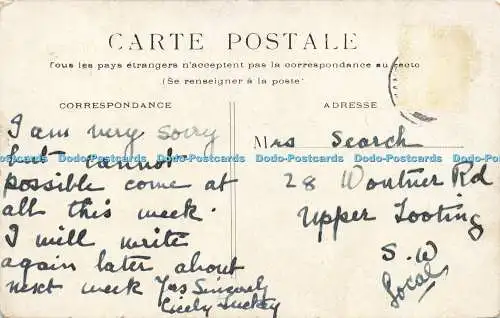 CARTE POSTALE
Tous les pays étrangers n'acceptent pas la correspondance au recto
(Se renseigner à la poste)
CORRESPONDANCE
I am very sorry
but cannot
possible come at
all this week.
I will write
again later about
next week Yrs Sincerely
Cicely Luckey
ADRESSE
Mrs Search
28 Wontner Rd
Upper Tooting
S.W
Local
Dodo-Postcards Dodo-Postcards Dodo-Postcards Dodo-Postcards Dodo-Postcards